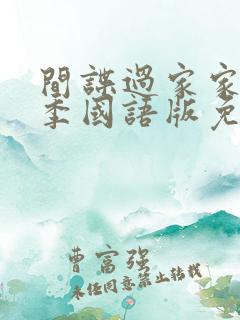 間諜過家家
季國語版免
曹富强
未任同意禁止转载